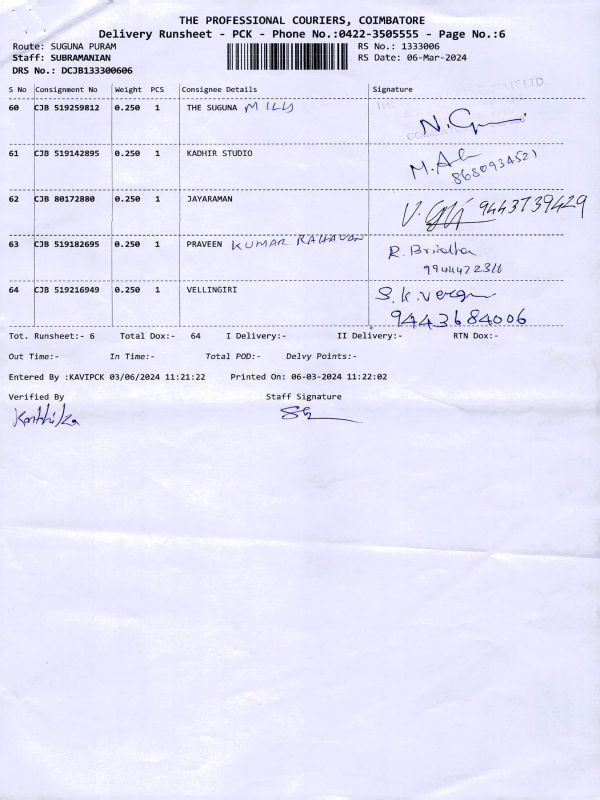 THE PROFESSIONAL COURIERS, COIMBATORE
Delivery Runsheet - PCK - Phone No.:0422-3505555 - Page No.:6
Route: SUGUNA PURAM RS No.: 1333006
Staff: SUBRAMANIAN RS Date: 06-Mar-2024
DRS No.: DCJB133300606
S No Consignment No Weight PCS Consignee Details Signature
60 CJB 519259812 0.250 1 THE SUGUNA MILLS
61 CJB 519142895 0.250 1 KADHIR STUDIO
8680934521
62 CJB 80172880 0.250 1 JAYARAMAN 9443739429
63 CJB 519182695 0.250 1 PRAVEEN KUMAR RAGHAVAN
9944472316
64 CJB 519216949 0.250 1 VELLINGIRI S.K.
9443684006
Tot. Runsheet:- 6 Total Dox:- 64 I Delivery:- II Delivery:- RTN Dox:-
Out Time:- In Time:- Total POD:- Delvy Points:-
Entered By :KAVIPCK 03/06/2024 11:21:22 Printed On: 06-03-2024 11:22:02
Verified By Staff Signature